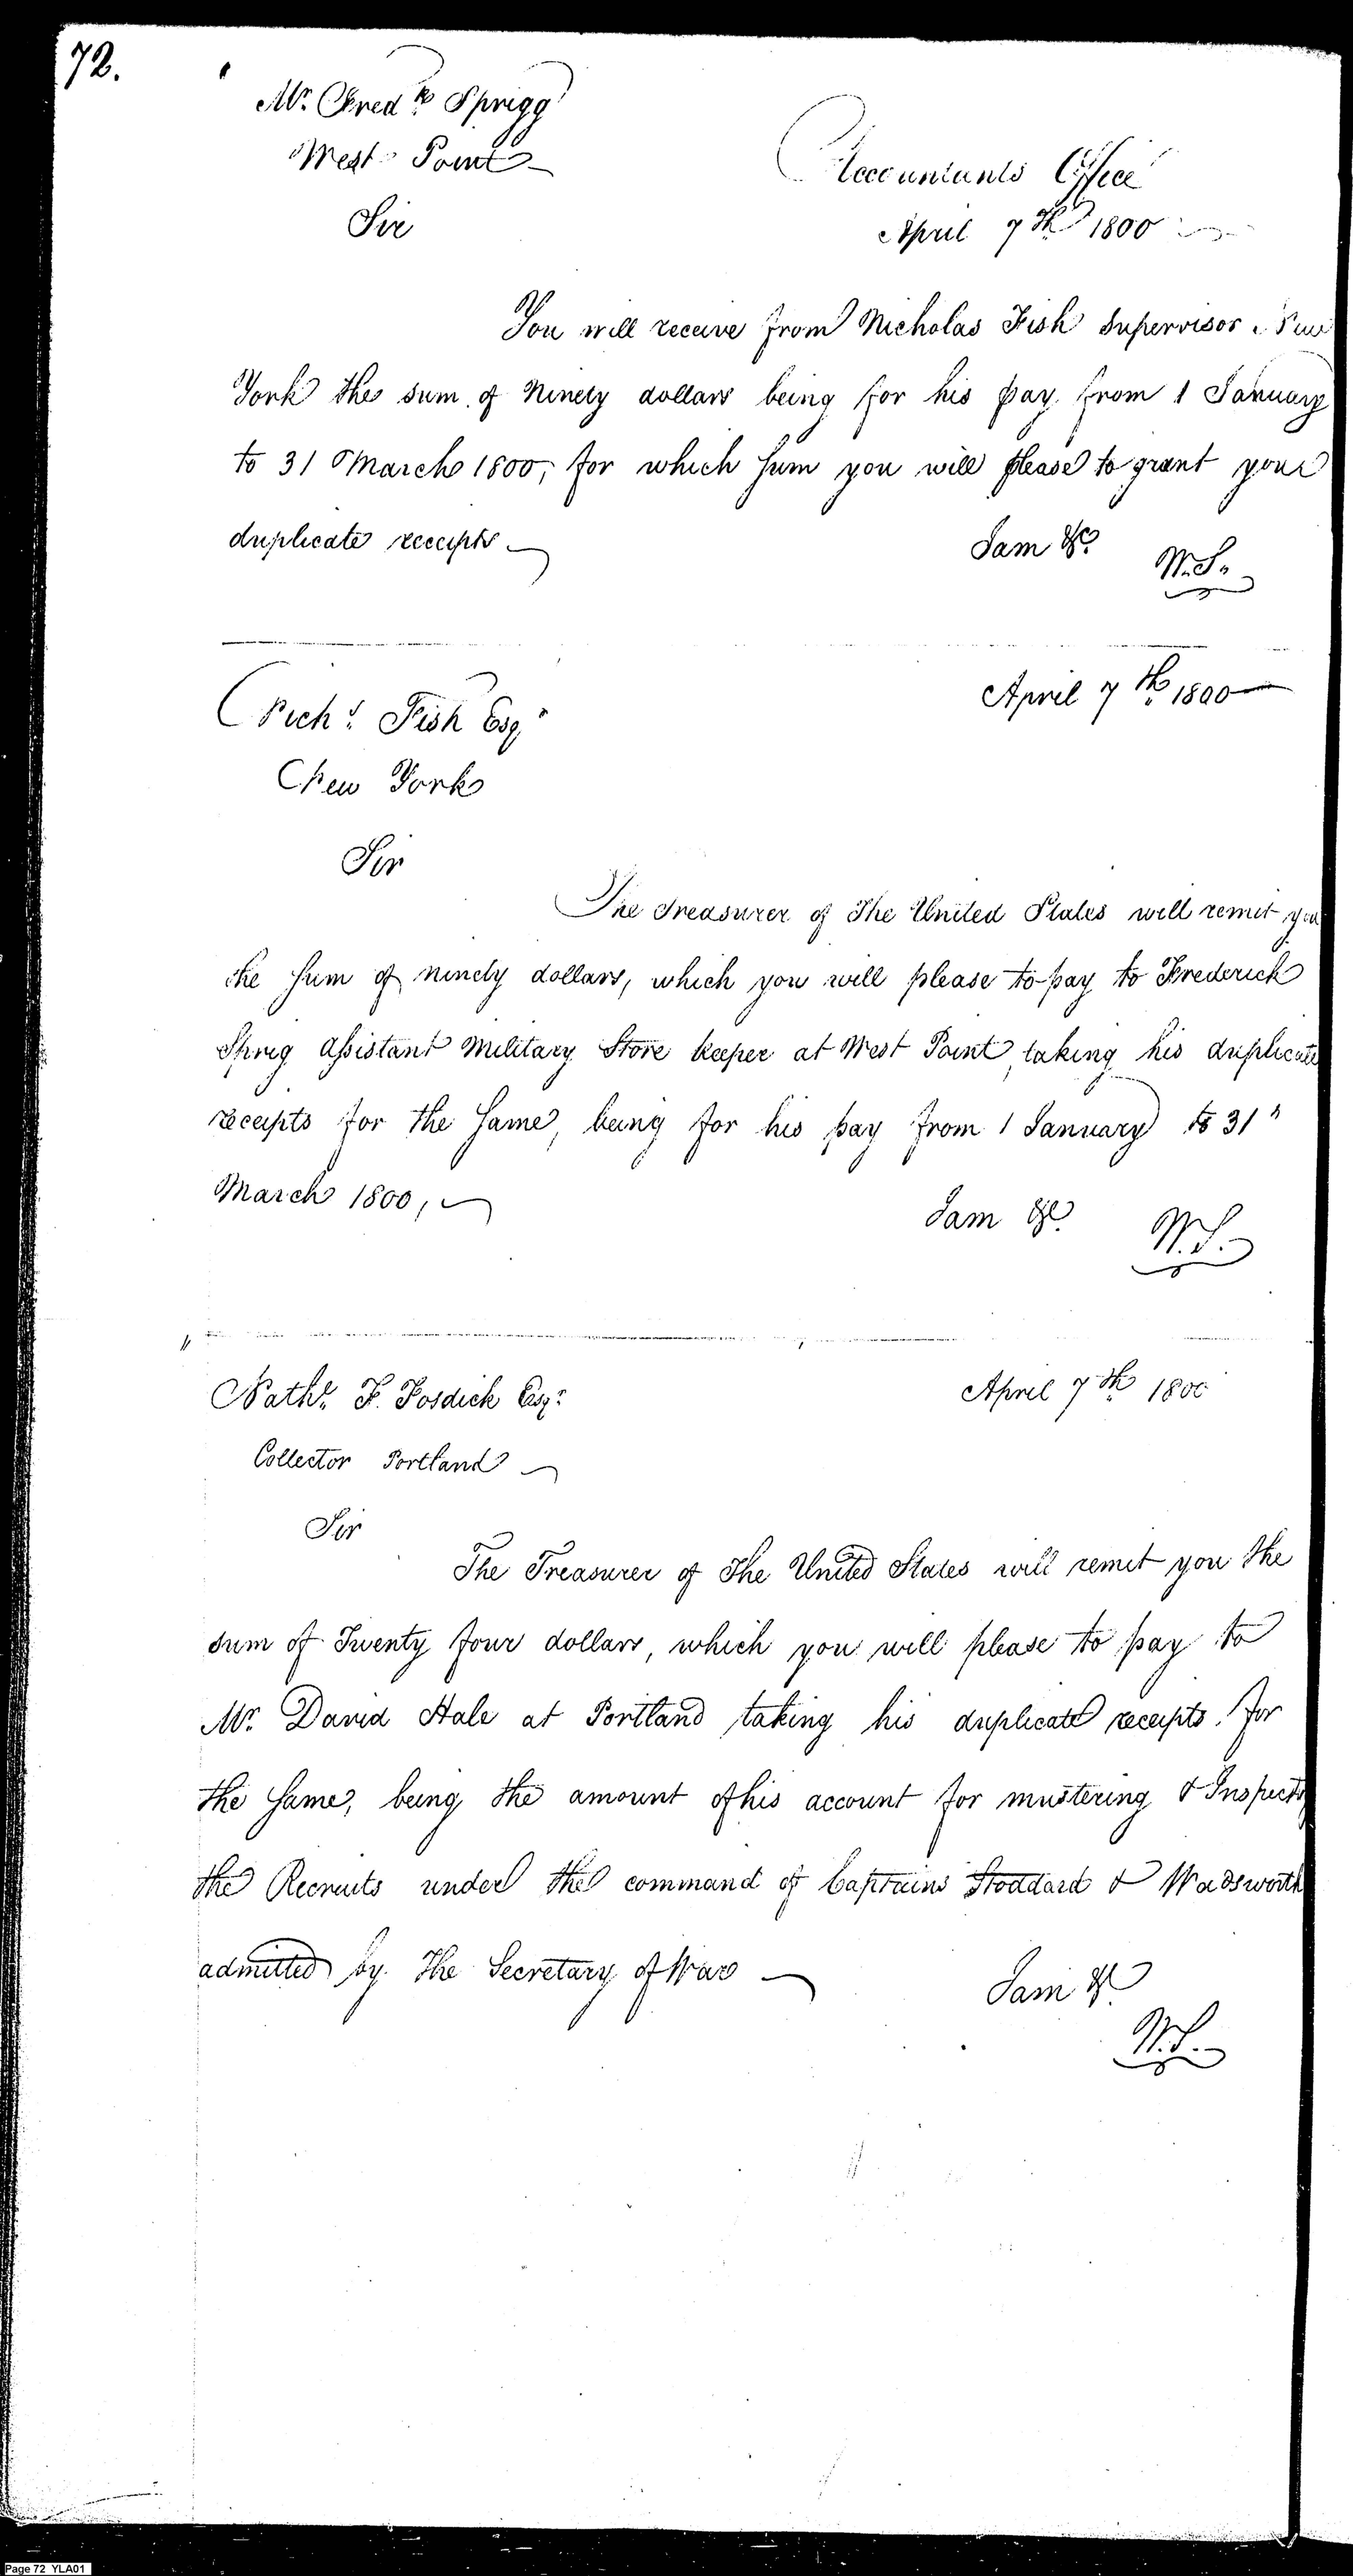 72.
Mr. Fredk Sprigg
West Point
Accountants Office
Sir
April 7th 1800
You will receive from Nicholas Fish Supervisor New
York the sum of Ninety dollars being for his pay from 1 January
to 31 March 1800, for which sum you will please to grant your
duplicate receipts
I am &c.
W.S.
April 7th 1800
Nichs. Fish Esqr
New York
Sir
The Treasurer of The United States will remit you
the sum of ninety dollars, which you will please to pay to Frederick
Sprig assistant Military Store keeper at West Point, taking his duplicate
receipts for the same, being for his pay from 1 January to 31"
March 1800,
I am &c.
W.S.
Nathl. F. Fosdick Esqr.
April 7th 1800
Collector Portland
Sir
The Treasurer of The United States will remit you the
sum of Twenty four dollars, which you will please to pay to
Mr. David Hale at Portland taking his duplicate receipts for
the same, being the amount of his account for mustering & Inspectg
the Recruits under the command of Captains Stoddard & Wadsworth
admitted by The Secretary of War
I am &c.
W.S.
Page 72 YLA01